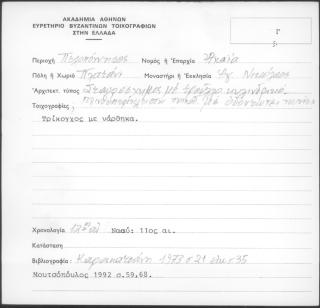 ΑΚΑΔΗΜΙΑ ΑΘΗΝΩΝ
ΕΥΡΕΤΗΡΙΟ ΒΥΖΑΝΤΙΝΩΝ ΤΟΙΧΟΓΡΑΦΙΩΝ
ΣΤΗΝ ΕΛΛΑΔΑ
Περιοχή Πελοπόννησος Νομός ή Επαρχία Αχαΐα
Πόλη ή Χωριό Πλατάνι Μοναστήρι ή Εκκλησία Αγ. Νικόλαος
Αρχιτεκτ. τύπος Σταυροειδής με τρούλλο κυλινδρικό
Τοιχογραφίες,
Τρίκογχος με νάρθηκα.
Χρονολογία 12ος αι Ναού: 11ος αι.
Κατάσταση
Βιβλιογραφία: 1978 σ 21 σ 35
Νουτσόπουλος 1992 σ.59,68.